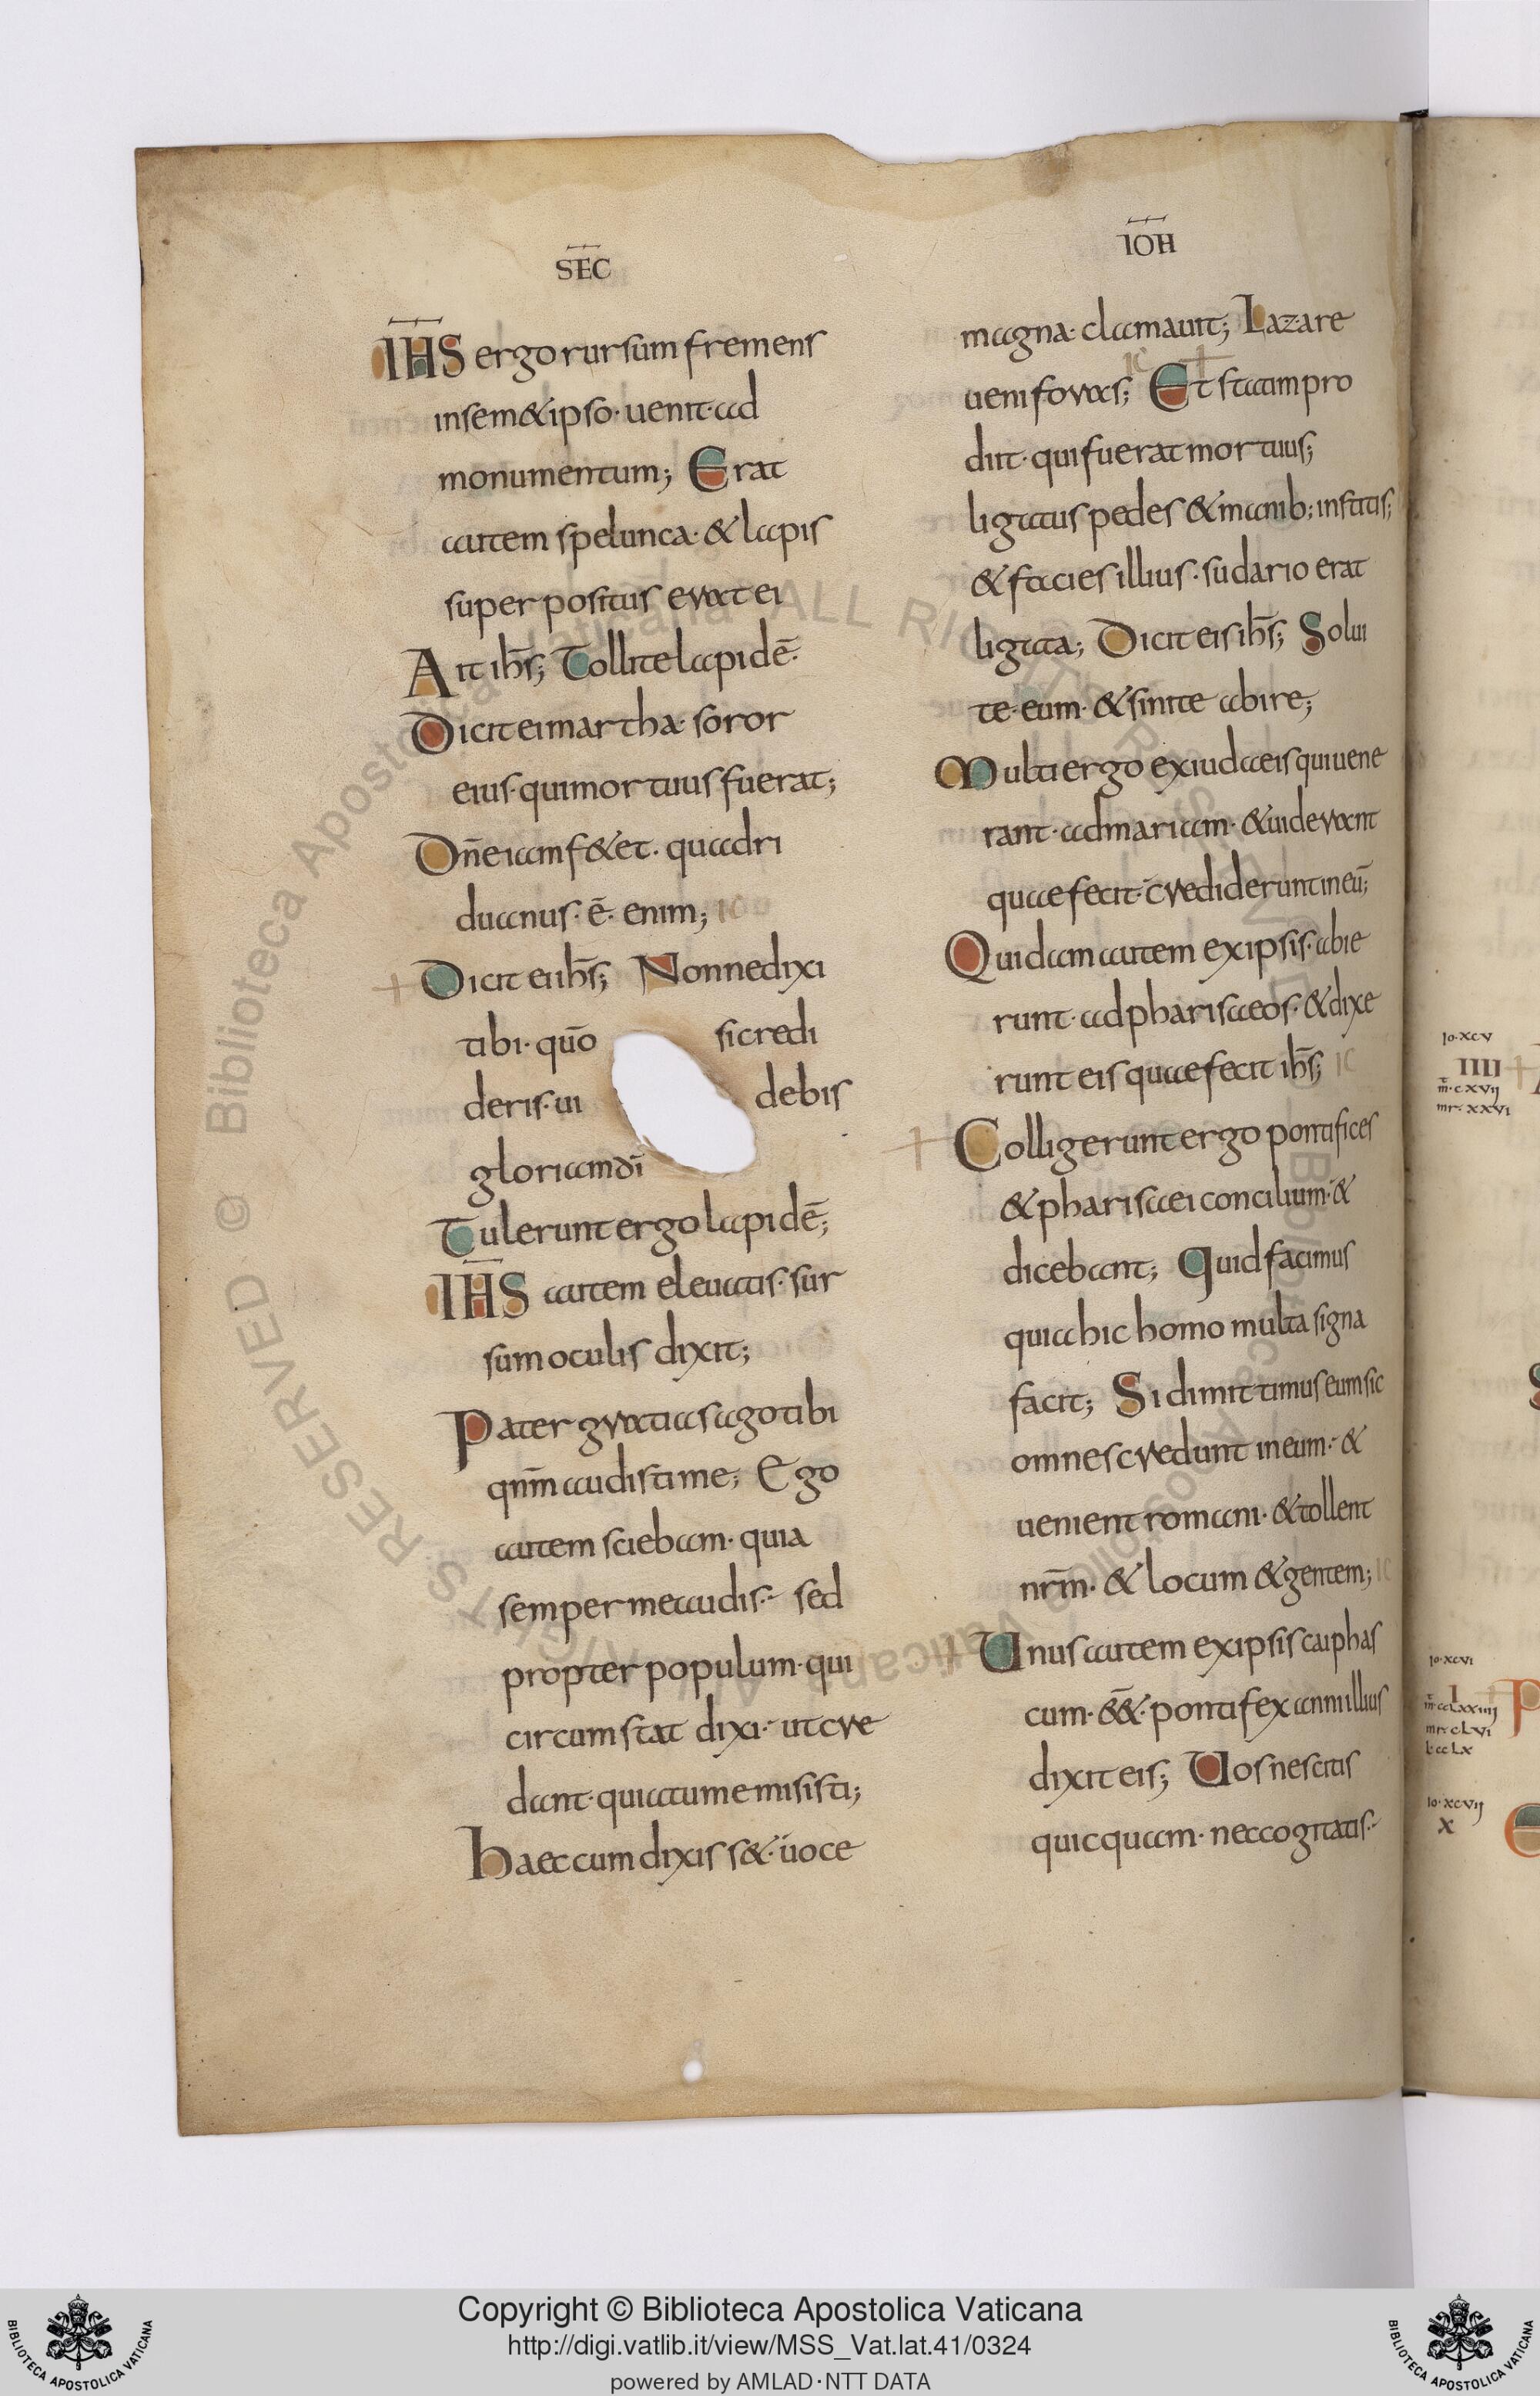 SEC
IHS ergo rursum fremens
in sem&ipso · uenit · ad
monumentum; Erat
autem spelunca · & lapis
super positus erat ei
Ait ihs̄; Tollite lapidē·
Dicit ei martha · soror
eius · qui mortuus fuerat;
Dn̄e iam f&et · quadri
duanus · ē · enim;
Dicit ei ihs̄; Nonne dixi
tibi · quō si credi
deris · ui debis
gloriam dī
Tulerunt ergo lapidē;
IHS autem eleuatis · sur
sum oculis dixit;
Pater gratias ago tibi
qnm̄ audisti me; Ego
autem sciebam · quia
semper me audis · sed
propter populum · qui
circumstat dixi · ut cre
dant · quia tu me misisti;
Haec cum dixiss& · uoce
IOH
magna · clamauit; Lazare
ueni foras; Et statim pro
diit · qui fuerat mortuus;
ligatus pedes & manib; institis;
& facies illius · sudario erat
ligata; Dicit eis ihs̄; Solui
te · eum · & sinite abire;
Multi ergo ex iudaeis qui uene
rant · ad mariam · & uiderant
quae fecit · crediderunt in eū;
Quidam autem ex ipsis · abie
runt · ad pharisaeos · & dixe
runt eis quae fecit ihs̄;
Colligerunt ergo pontifices
& pharisaei concilium · &
dicebant; Quid facimus
quia hic homo multa signa
facit; Si dimittimus eum sic
omnes credunt in eum · &
uenient romani · & tollent
nrm̄ · & locum & gentem;
Unus autem ex ipsis caiphas
cum · ēē& · pontifex anni illius
dixit eis; Uos nescitis
quicquam · nec cogitatis ·
Io · xcv
IIII
m̄ · cxvij
mr · xxvi
Io · xcvi
I
m̄ · cclxxiiij
mr · clvi
l · cclx
Io · xcvij
X
Copyright © Biblioteca Apostolica Vaticana
http://digi.vatlib.it/view/MSS_Vat.lat.41/0324
powered by AMLAD · NTT DATA
BIBLIOTECA APOSTOLICA VATICANA
BIBLIOTECA APOSTOLICA VATICANA